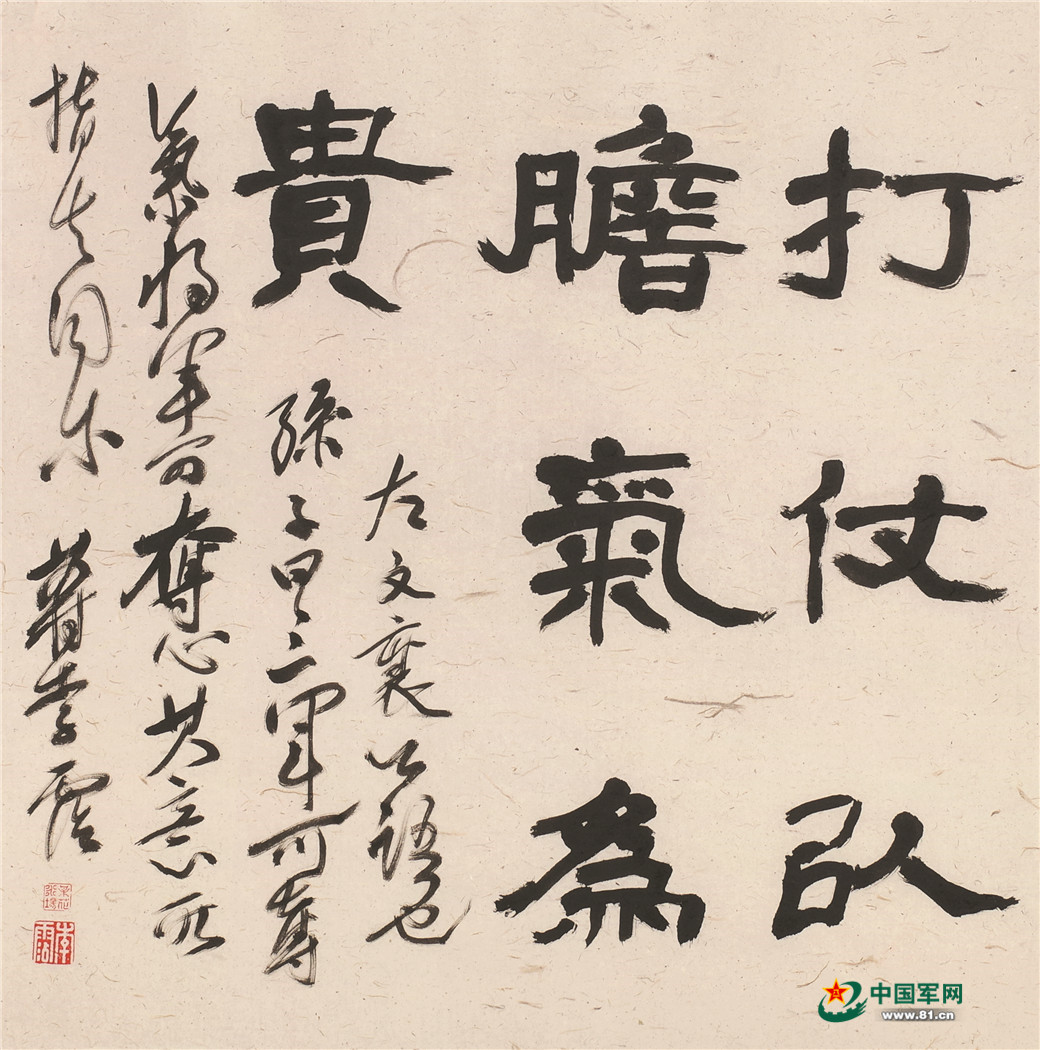 打仗以
膽氣為
貴
左文襄公語也
孫子曰三軍可奪
氣將軍可奪心其意所
指大同 李
中国军网
www.81.cn